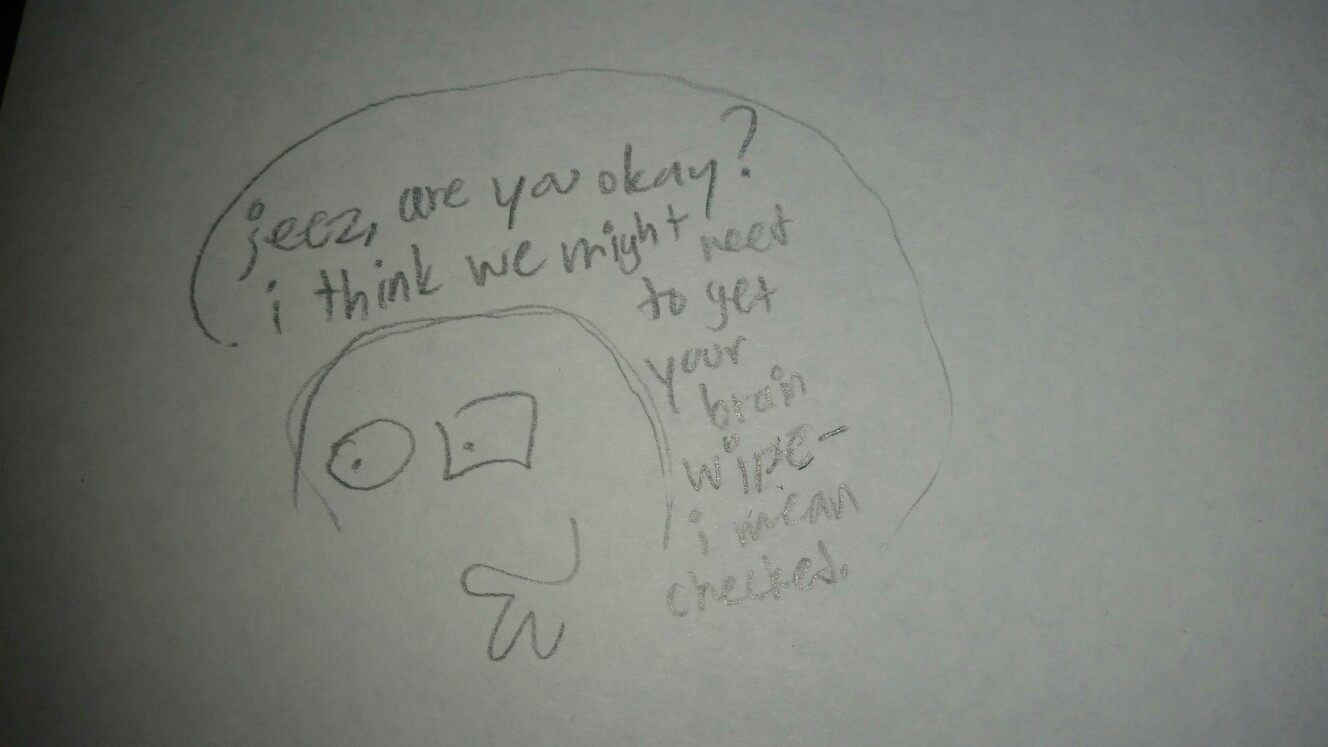 jeez, are you okay?
i think we might need
to get
your
brain
wipe-
i mean
checked.